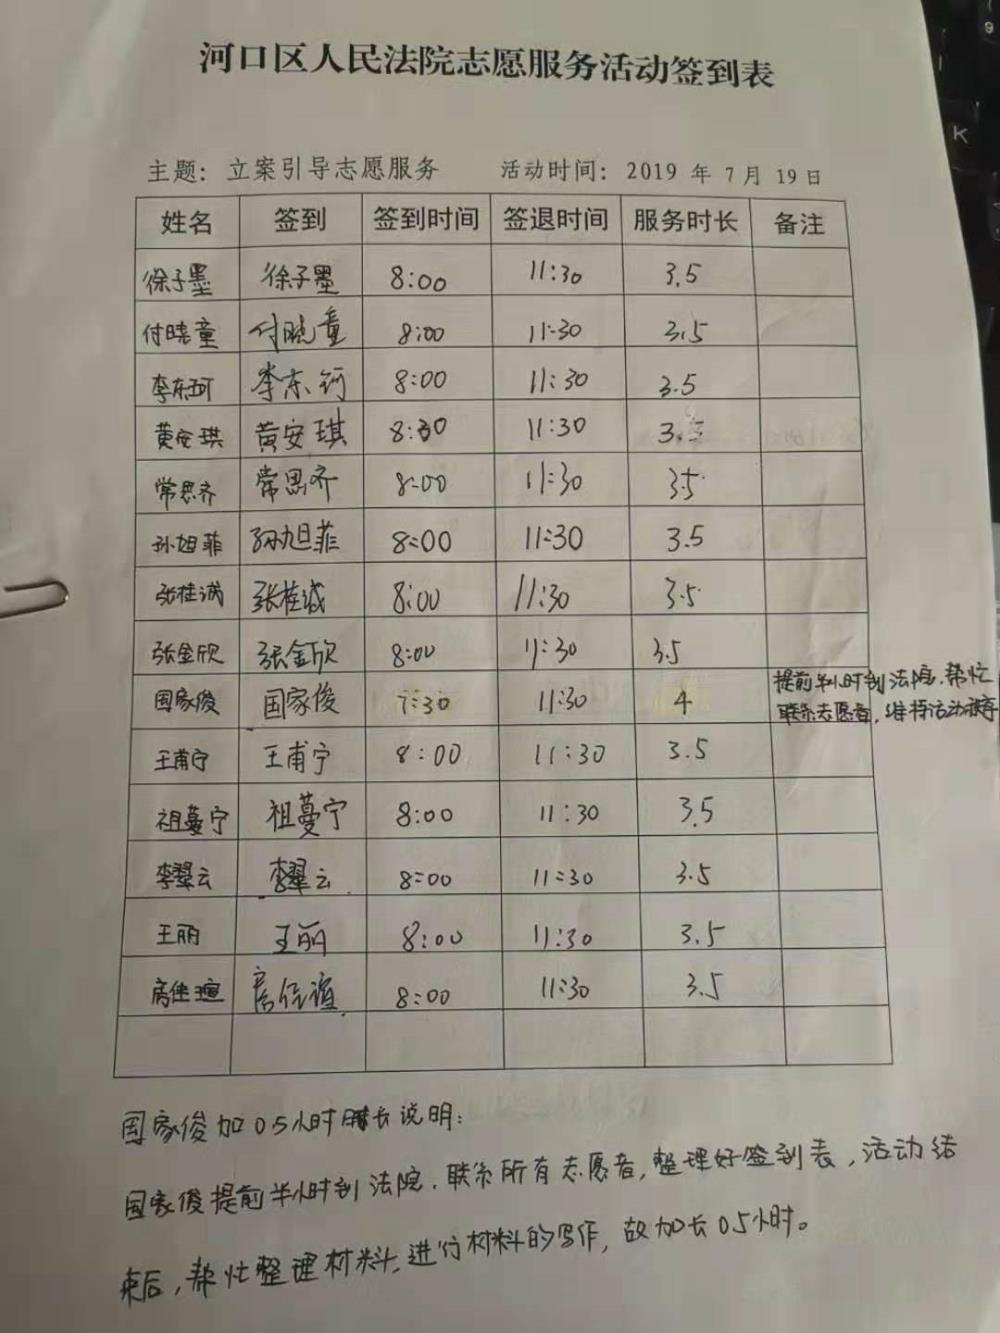 河口区人民法院志愿服务活动签到表
主题：立案引导志愿服务 活动时间：2019 年 7 月 19 日
姓名 签到 签到时间 签退时间 服务时长 备注
徐子墨 徐子墨 8:00 11:30 3.5
付晓童 付晓童 8:00 11:30 3.5
李东珂 李东珂 8:00 11:30 3.5
黄安琪 黄安琪 8:00 11:30 3.5
常思齐 常思齐 8:00 11:30 3.5
孙旭菲 孙旭菲 8:00 11:30 3.5
张桂诚 张桂诚 8:00 11:30 3.5
张金欣 张金欣 8:00 11:30 3.5
国家俊 国家俊 7:30 11:30 4 提前半小时到法院，帮忙
联系志愿者，维持活动秩序
王甫宁 王甫宁 8:00 11:30 3.5
祖蔓宁 祖蔓宁 8:00 11:30 3.5
李翠云 李翠云 8:00 11:30 3.5
王丽 王丽 8:00 11:30 3.5
8:00 11:30 3.5
国家俊加0.5小时时长说明：
国家俊提前半小时到法院，联系所有志愿者，整理好签到表，活动结
束后，帮忙整理材料，进行材料的写作，故加长0.5小时。